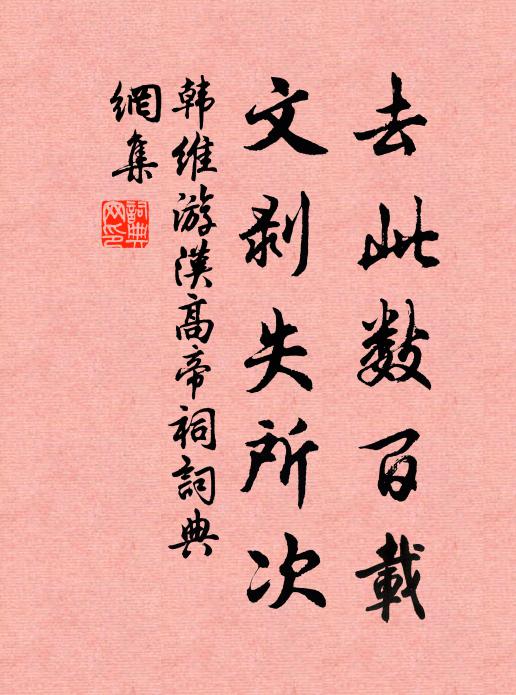 去此数百載
文剥失所次
韩維游漢高帝祠詞典
網集
詞典
网印